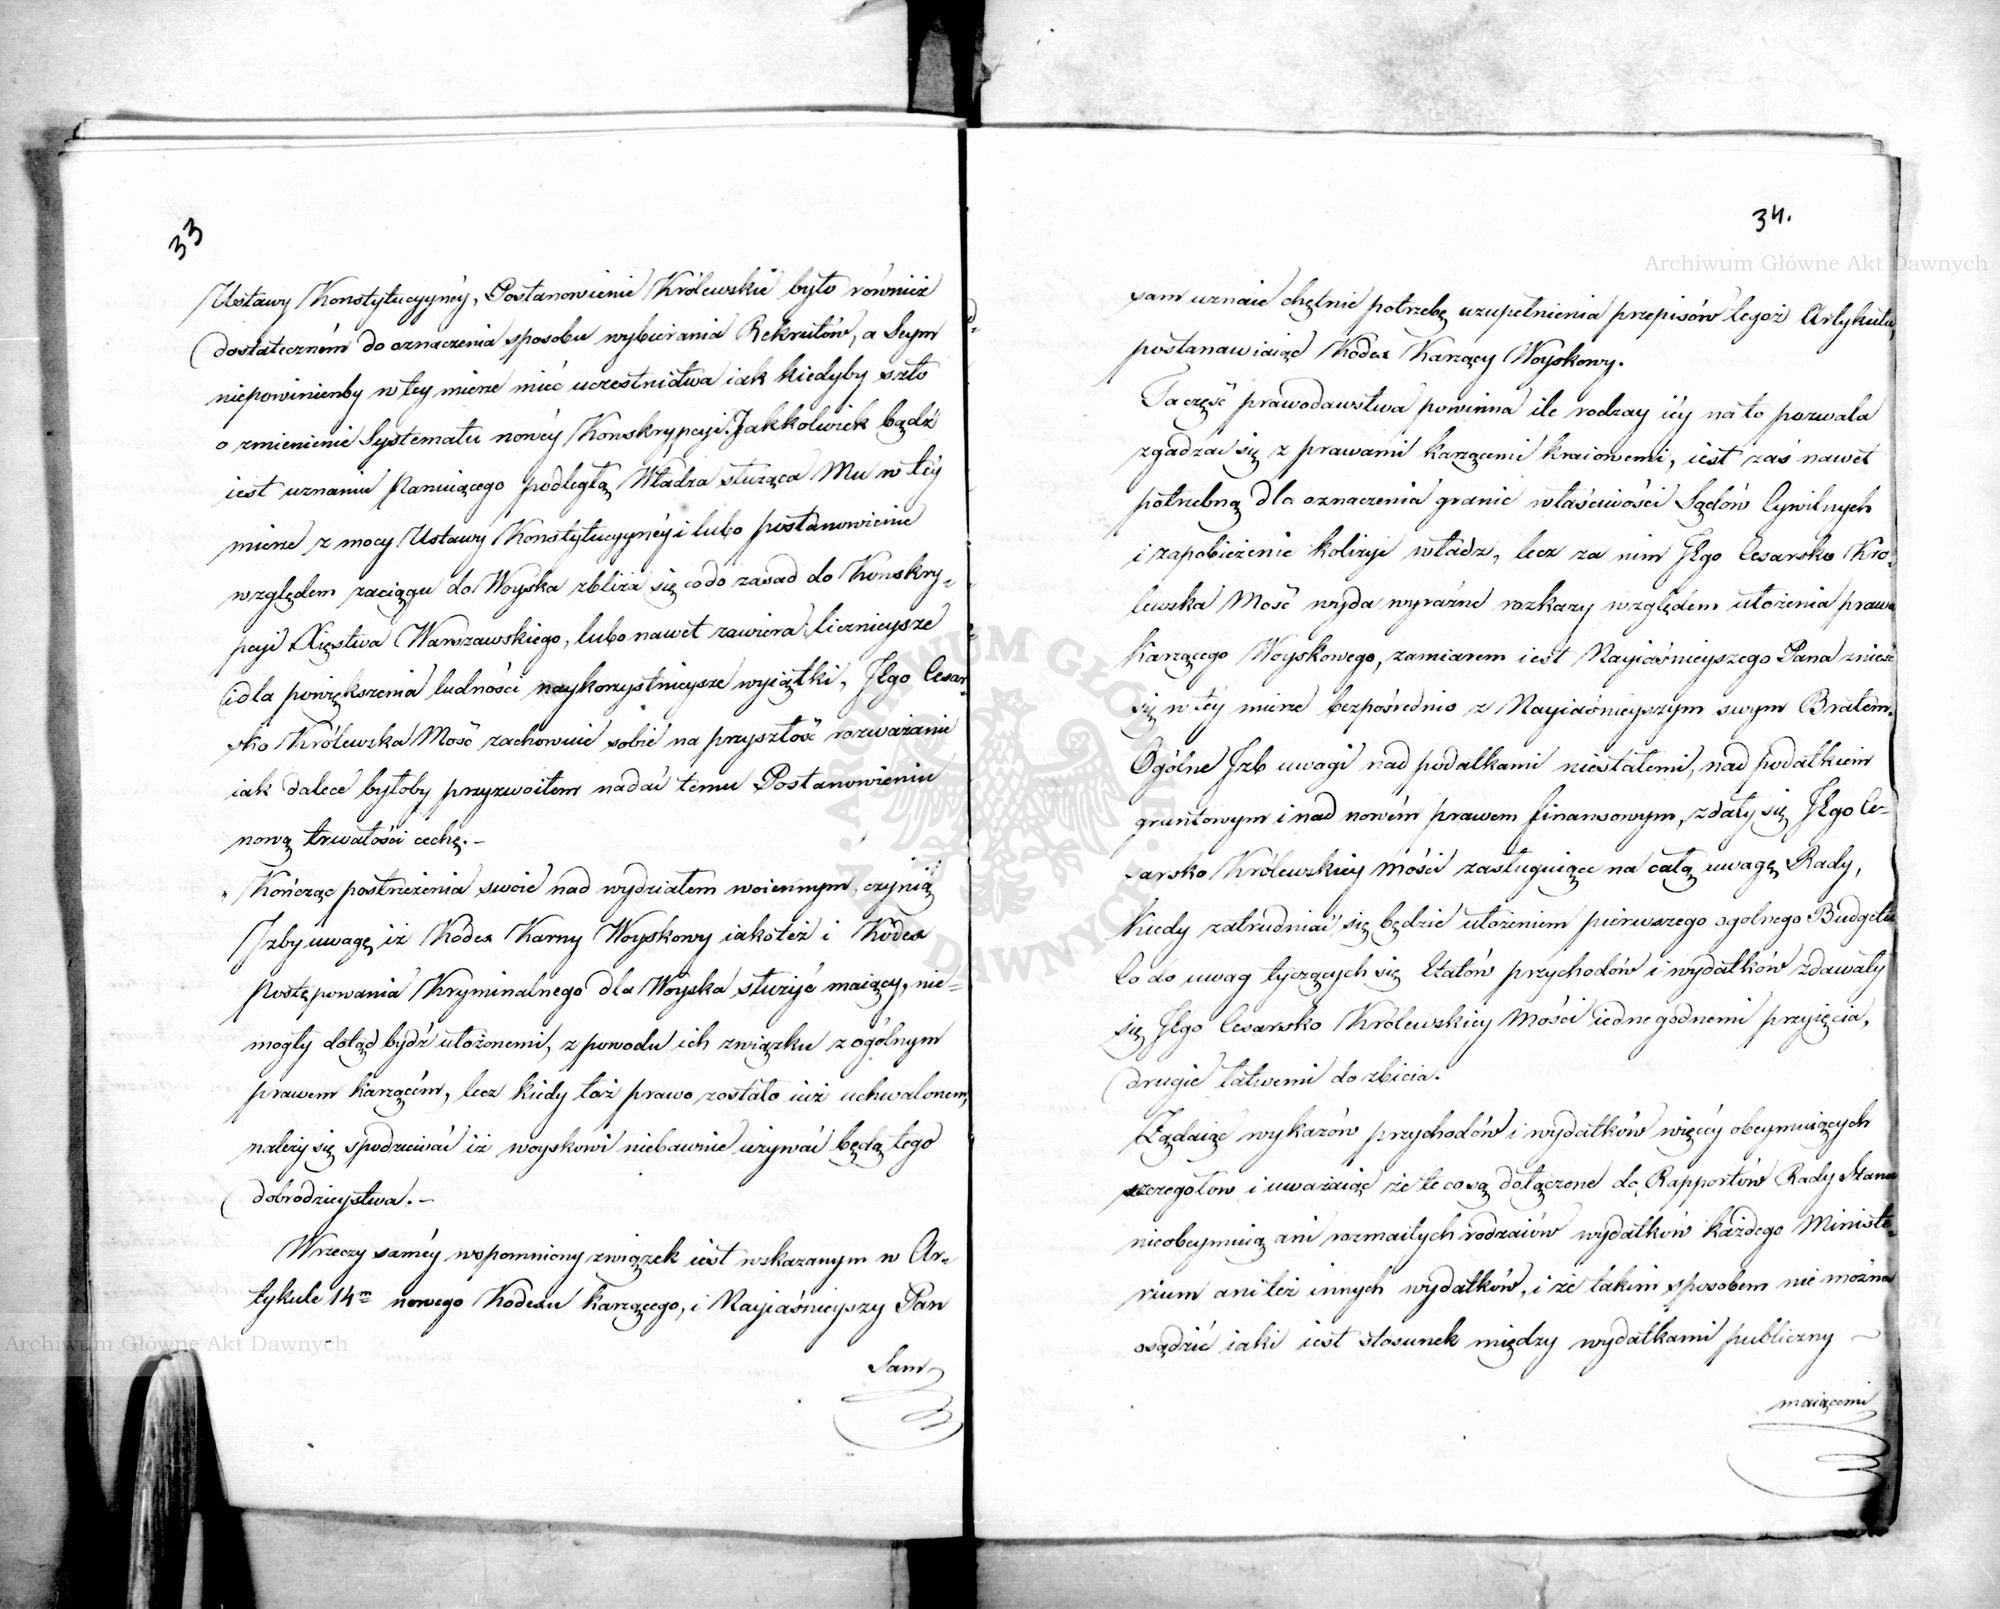 33
Ustawy Konstytucyynéy, Postanowienie Królewskie było również
dostateczném do oznaczenia sposobu wybierania Rekrutów, a Seym
niepowinienby w tey mierze mieć uczestnictwa iak kiedyby szło
o zmienienie Systematu nowéy Konskrypcyi. Jakkolwiek bądź
iest uznaniu Panuiącego podległą Władza służąca Mu w téy
mierze z mocy Ustawy Konstytucyynéy i lubo postanowienie
względem zaciągu do Woyska zbliża się co do zasad do Konskry-
pcyi Xięstwa Warszawskiego, lubo nawet zawiera licznieysze
i dla powiększenia ludności naykorzystnieysze wyiątki, JEgo Cesar-
sko Królewska Mość zachowuie sobie na przyszłość rozważanie
iak dalece byłoby przyzwoitem nadać temu Postanowieniu
nową trwałości cechę. -
Kończąc postrzeżenia swoie nad wydziałem woiennym, czynią
Izby uwagę iż Kodex Karny Woyskowy iako też i Kodex
Postępowania Kryminalnego dla Woyska służyć maiący, nie-
mogły dotąd bydź ułożonemi, z powodu ich związku z ogólnym
prawem karzącém, lecz kiedy toż prawo zostało iuż uchwalonem,
należy się spodziewać iż woyskowi niebawnie używać będą tego
dobrodzieystwa. -
Wrzeczy saméy wspomniony związek iest wskazanym w Ar-
tykule 14m nowego Kodexu Karzącego, i Nayiaśnieyszy Pan
Sam
34.
sam uznaie chętnie potrzebę uzupełnienia przepisów tegoż Artykułu,
postanawiaiąc Kodex Karzący Woyskowy.
Ta część prawodawstwa powinna ile rodzay iéy na to pozwala
zgadzać się z prawami karzącemi kraiowemi, iest zaś nawet
potrzebną dla oznaczenia granic właściwości Sądów Cywilnych
i zapobieżenie kolizyi władz, lecz za nim JEgo Cesarsko Kró-
lewska Mość wyda wyraźne rozkazy względem ułożenia prawa
Karzącego Woyskowego, zamiarem iest Nayiaśnieyszego Pana znieść
się w téy mierze bezpośrednio z Nayiaśnieyszym swym Bratem.
Ogólne Izb uwagi nad podatkami niestałemi, nad podatkiem
gruntowym i nad nowém prawem finansowym, zdały się JEgo Ce-
sarsko Królewskiey Mości zasługuiące na całą uwagę Rady,
kiedy zatrudniać się będzie ułożeniem pierwszego ogolnego Budgetu
Co do uwag tyczących się Etatów przychodów i wydatków zdawały
się JEgo Cesarsko Królewskiey Mości iedne godnemi przyięcia,
drugie łatwemi do zbicia.
Żądaiąc wykazów przychodów i wydatków więcéy obeymuiących
szczegołow i uważaiąc że te co są dołączone do Rapportów Rady Stanu
nieobeymuią ani rozmaitych rodzaiów wydatków każdego Ministe-
rium ani też innych wydatków, i że takim sposobem nie można
osądzić iaki iest stosunek między wydatkami publiczny
maiącemi
Archiwum Główne Akt Dawnych
Archiwum Główne Akt Dawnych
ARCHIWUM GŁÓWNE AKT DAWNYCH